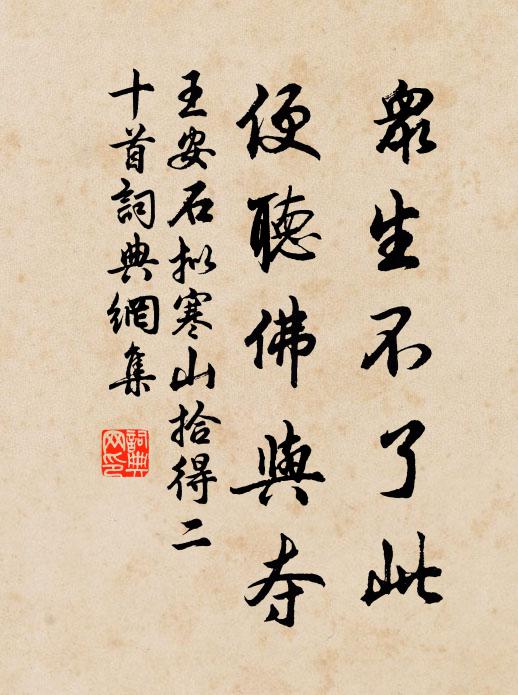 眾生不了此
便聽佛與夺
王安石拟寒山拾得二
十首詞典網集
詞典
网印